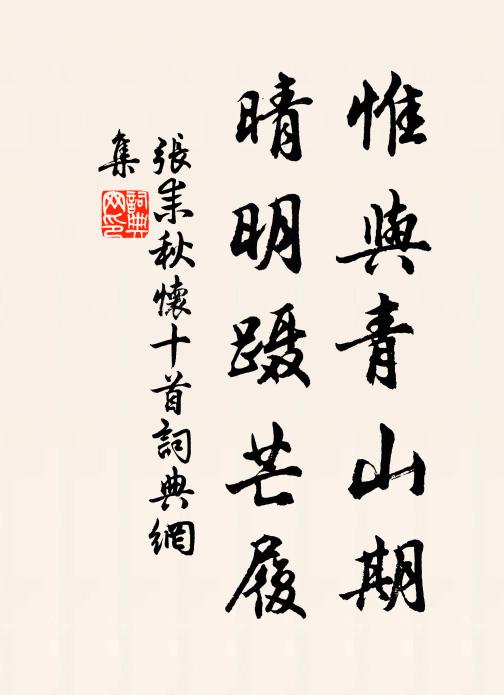 惟與青山期
晴明蹑芒履
張耒秋懷十首詞典網
集
詞典网印